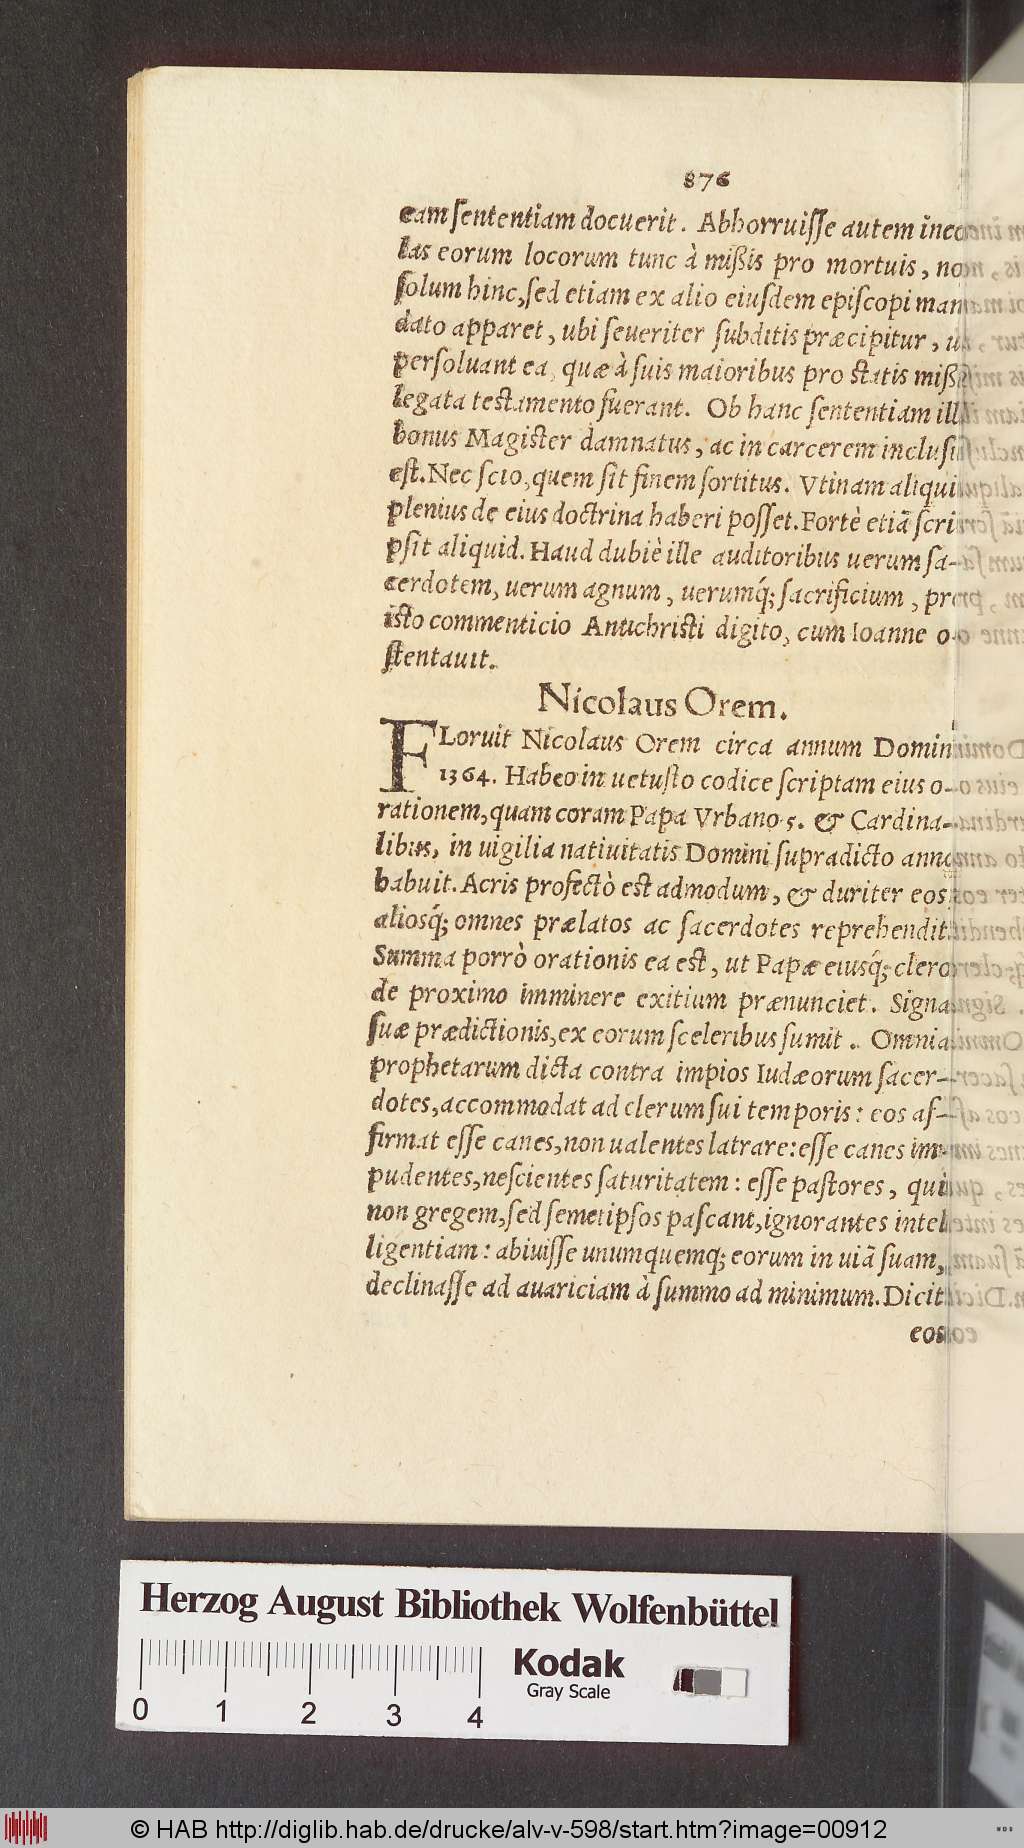 876
eam ſententiam docuerit. Abhorruiſſe autem inco
las eorum locorum tunc à mißis pro mortuis, non
ſolum hinc, ſed etiam ex alio eiuſdem epiſcopi man
dato apparet, ubi ſeueriter ſubditis præcipitur, ut
perſoluant ea, quæ à ſuis maioribus pro ſtatis mißis
legata teſtamento fuerant. Ob hanc ſententiam ille
bonus Magiſter damnatus, ac in carcerem incluſus
eſt. Nec ſcio, quem ſit finem ſortitus. Vtinam aliquid
plenius de eius doctrina haberi poſſet. Fortè etiã ſcri
pſit aliquid. Haud dubiè ille auditoribus uerum ſa-
cerdotem, uerum agnum, uerumq́; ſacrificium, pro
iſto commenticio Antichriſti digito, cum Ioanne o-
ſtentauit.
Nicolaus Orem.
FLoruit Nicolaus Orem circa annum Domini
1364. Habeo in uetuſto codice ſcriptam eius o-
rationem, quam coram Papa Vrbano 5. & Cardina-
libus, in uigilia natiuitatis Domini ſupradicto anno
habuit. Acris profectò eſt admodum, & duriter eos,
aliosq́; omnes prælatos ac ſacerdotes reprehendit.
Summa porrò orationis ea eſt, ut Papæ eiusq́; clero
de proximo imminere exitium prænunciet. Signa
ſuæ prædictionis, ex eorum ſceleribus ſumit. Omnia
prophetarum dicta contra impios Iudæorum ſacer-
dotes, accommodat ad clerum ſui temporis: eos aſ-
firmat eſſe canes, non ualentes latrare: eſſe canes im-
pudentes, neſcientes ſaturitatem: eſſe paſtores, qui
non gregem, ſed ſemetipſos paſcant, ignorantes intel
ligentiam: abiuiſſe unumquemq; eorum in uiã ſuam,
declinaſſe ad auariciam à ſummo ad minimum. Dicit
eos
Herzog August Bibliothek Wolfenbüttel
Kodak
Gray Scale
0 1 2 3 4
© HAB http://diglib.hab.de/drucke/alv-v-598/start.htm?image=00912